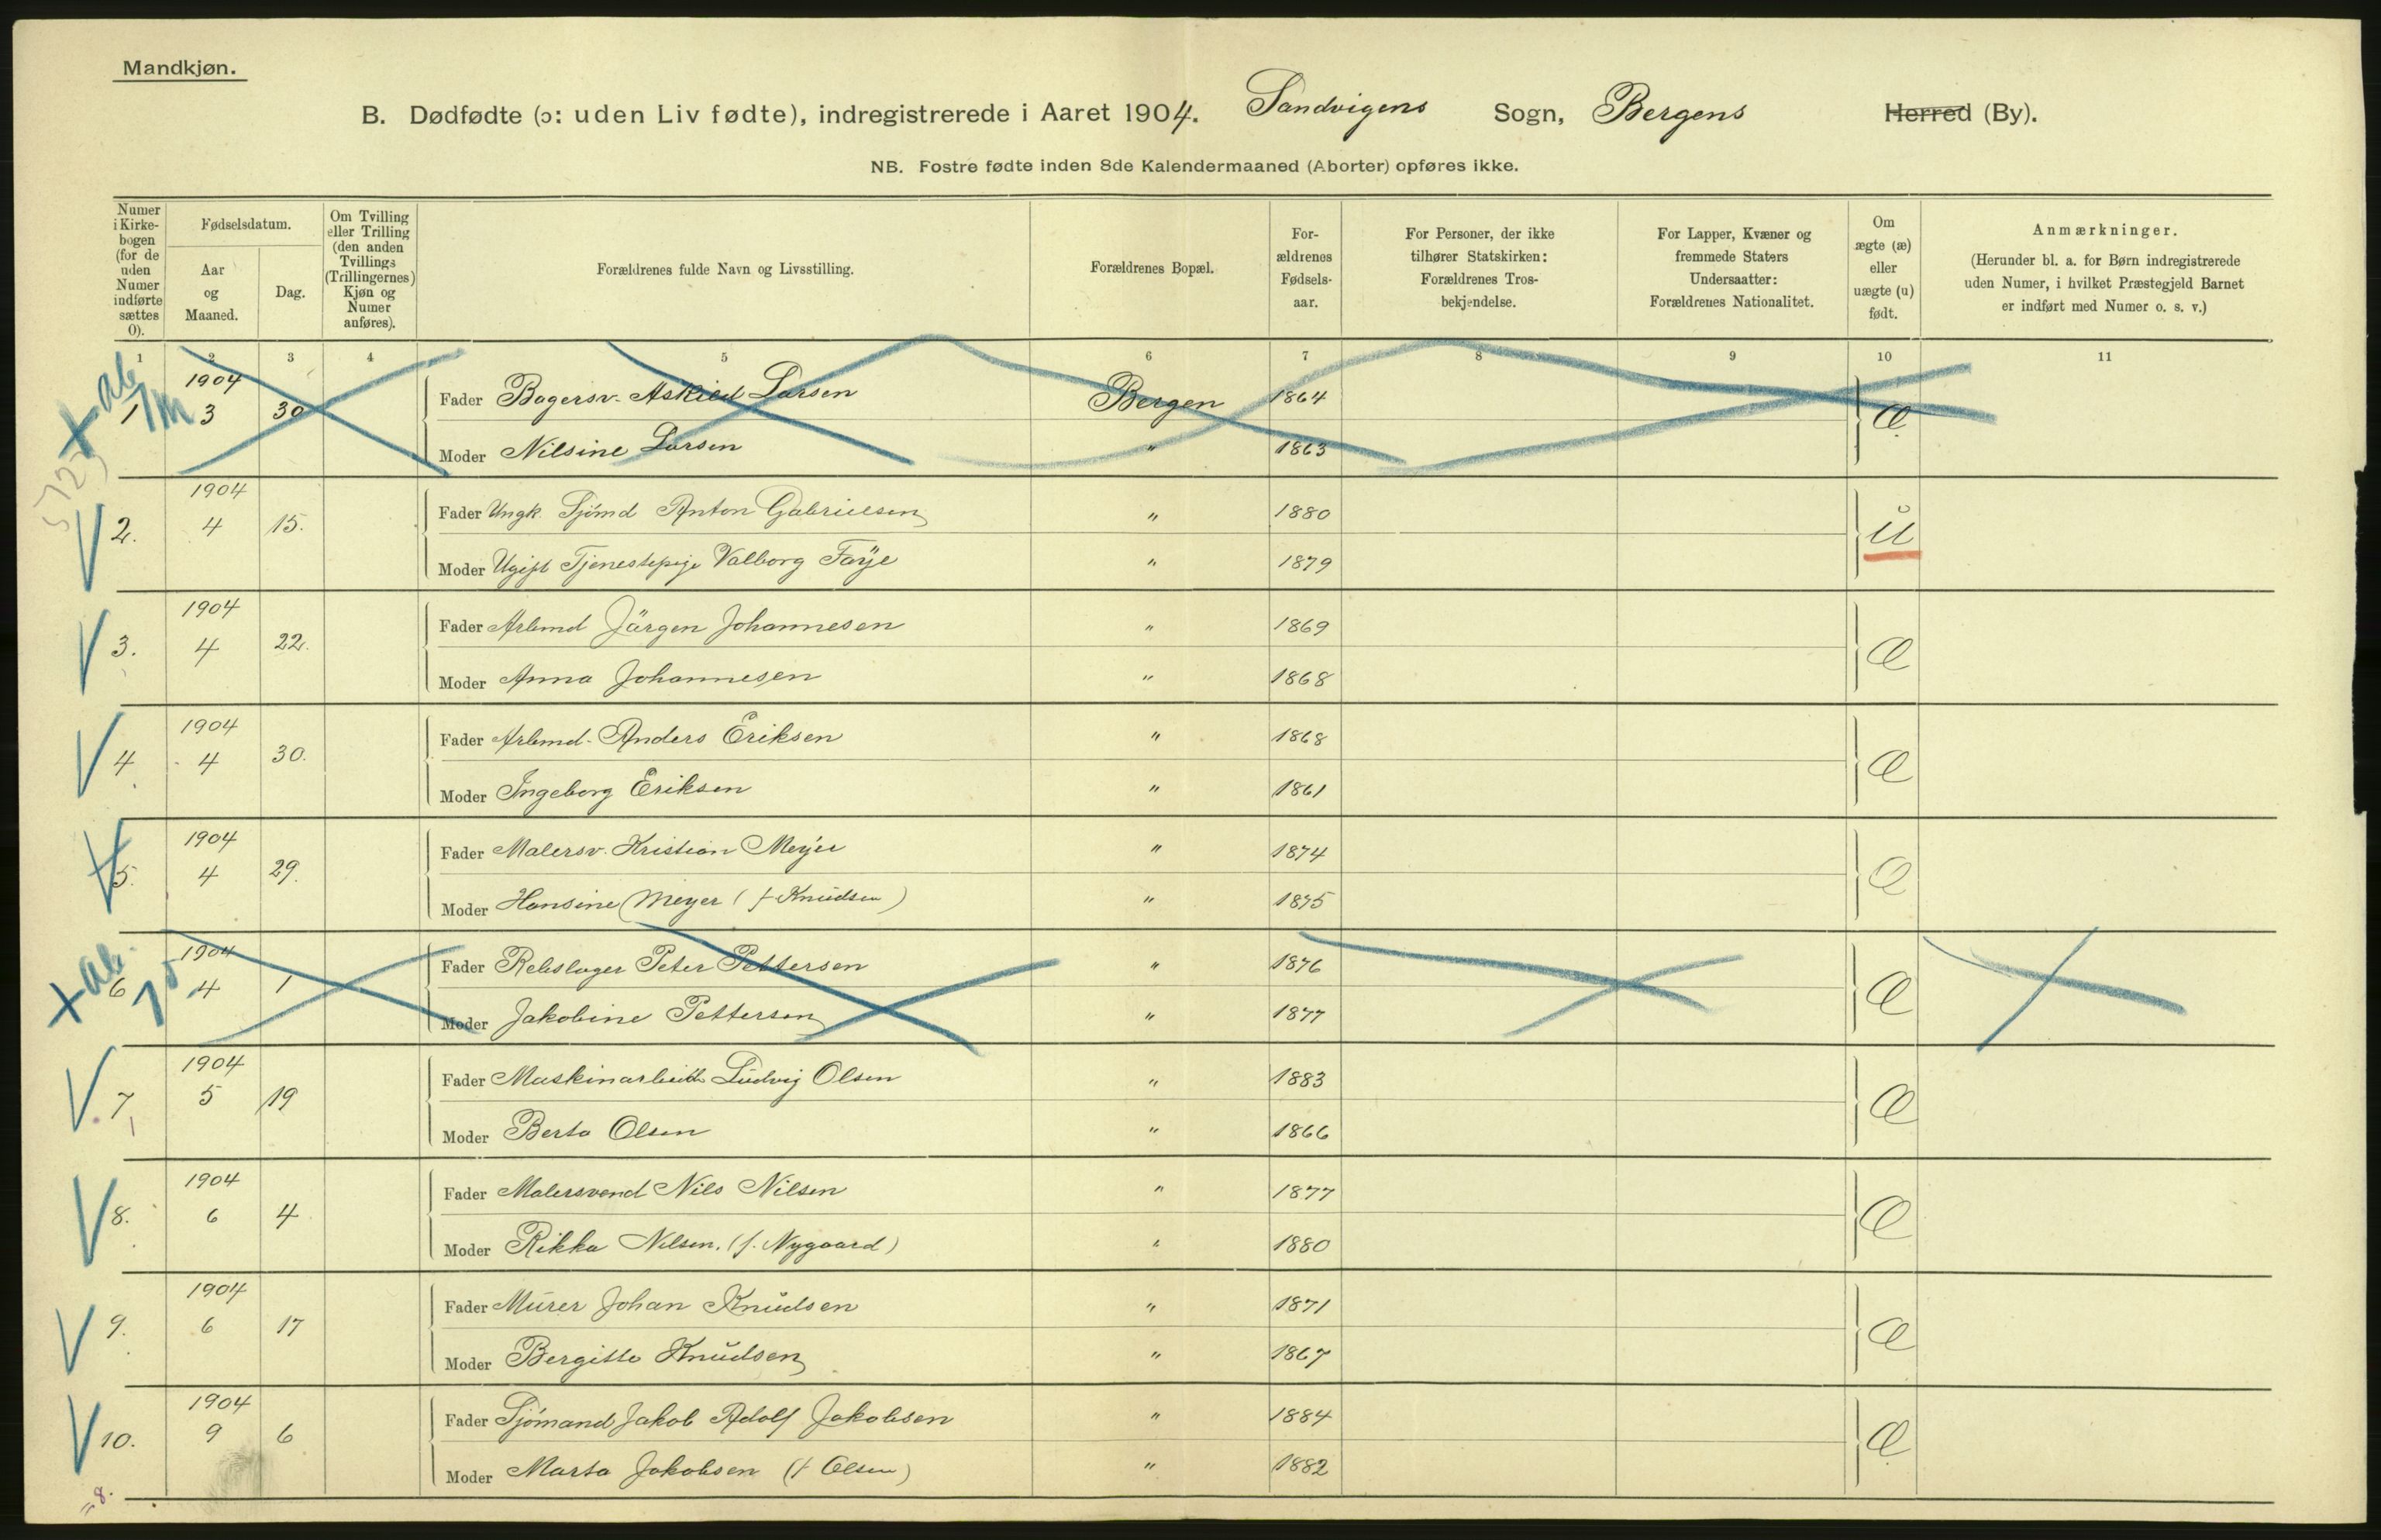 Mandkjøn.
B. Dødfødte (ɔ: uden Liv fødte), indregistrerede i Aaret 1904. Sandvigens Sogn, Bergens Herred (By).
NB. Fostre fødte inden 8de Kalendermaaned (Aborter) opføres ikke.
Numer i Kirkebogen (for de uden Numer indførte sættes 0).
Fødselsdatum.
Aar og Maaned.
Dag.
Om Tvilling eller Trilling (den anden Tvillings (Trillingernes) Kjøn og Numer anføres).
Forældrenes fulde Navn og Livsstilling.
Forældrenes Bopæl.
Forældrenes Fødselsaar.
For Personer, der ikke tilhører Statskirken: Forældrenes Trosbekjendelse.
For Lapper, Kvæner og fremmede Staters Undersaatter: Forældrenes Nationalitet.
Om ægte (æ) eller uægte (u) født.
Anmærkninger.
(Herunder bl. a. for Børn indregistrerede uden Numer, i hvilket Præstegjeld Barnet er indført med Numer o. s. v.)
1 2 3 4 5 6 7 8 9 10 11
+ ab
7m
1904
1 3 30 Fader Bagersv. Larsen Bergen 1864 Æ
Moder Nilsine Larsen " 1863
1904
V 2. 4 15. Fader Ungk. Sjömd Anton Gabrielsen " 1880 ŭ
Moder Ugift Tjenestepige Valborg Føÿe " 1879
1904
V 3. 4 22. Fader Arbmd Jörgen Johannesen " 1869 Æ
Moder Anna Johannesen " 1868
1904
V 4 4 30. Fader Arbmd. Anders Eriksen " 1868 Æ
Moder Ingeborg Eriksen " 1861
1904
V 5. 4 29. Fader Malersv. Kristian Meyer " 1874 Æ
Moder Hansine Meyer (f Knudsen) " 1875
+ ab.
1904
6 4 1 Fader Rebslager Peter Pettersen " 1876 Æ
Moder Jakobine Pettersen " 1877
1904
V 7 5 19 Fader Maskinarbeider Ludvig Olsen " 1883 Æ
Moder Berta Olsen " 1866
1904
V 8. 6 4 Fader Malersvend Nils Nilsen " 1877 Æ
Moder Rikka Nilsen. (f. Nygaard) " 1880
1904
V 9. 6 17 Fader Murer Johan Knudsen " 1871 Æ
Moder Bergitte Knudsen " 1867
1904
V 10. 9 6 Fader Sjömand Jakob Adolf Jakobsen " 1884 Æ
Moder Marta Jakobsen (f Olsen) " 1882
" 8.